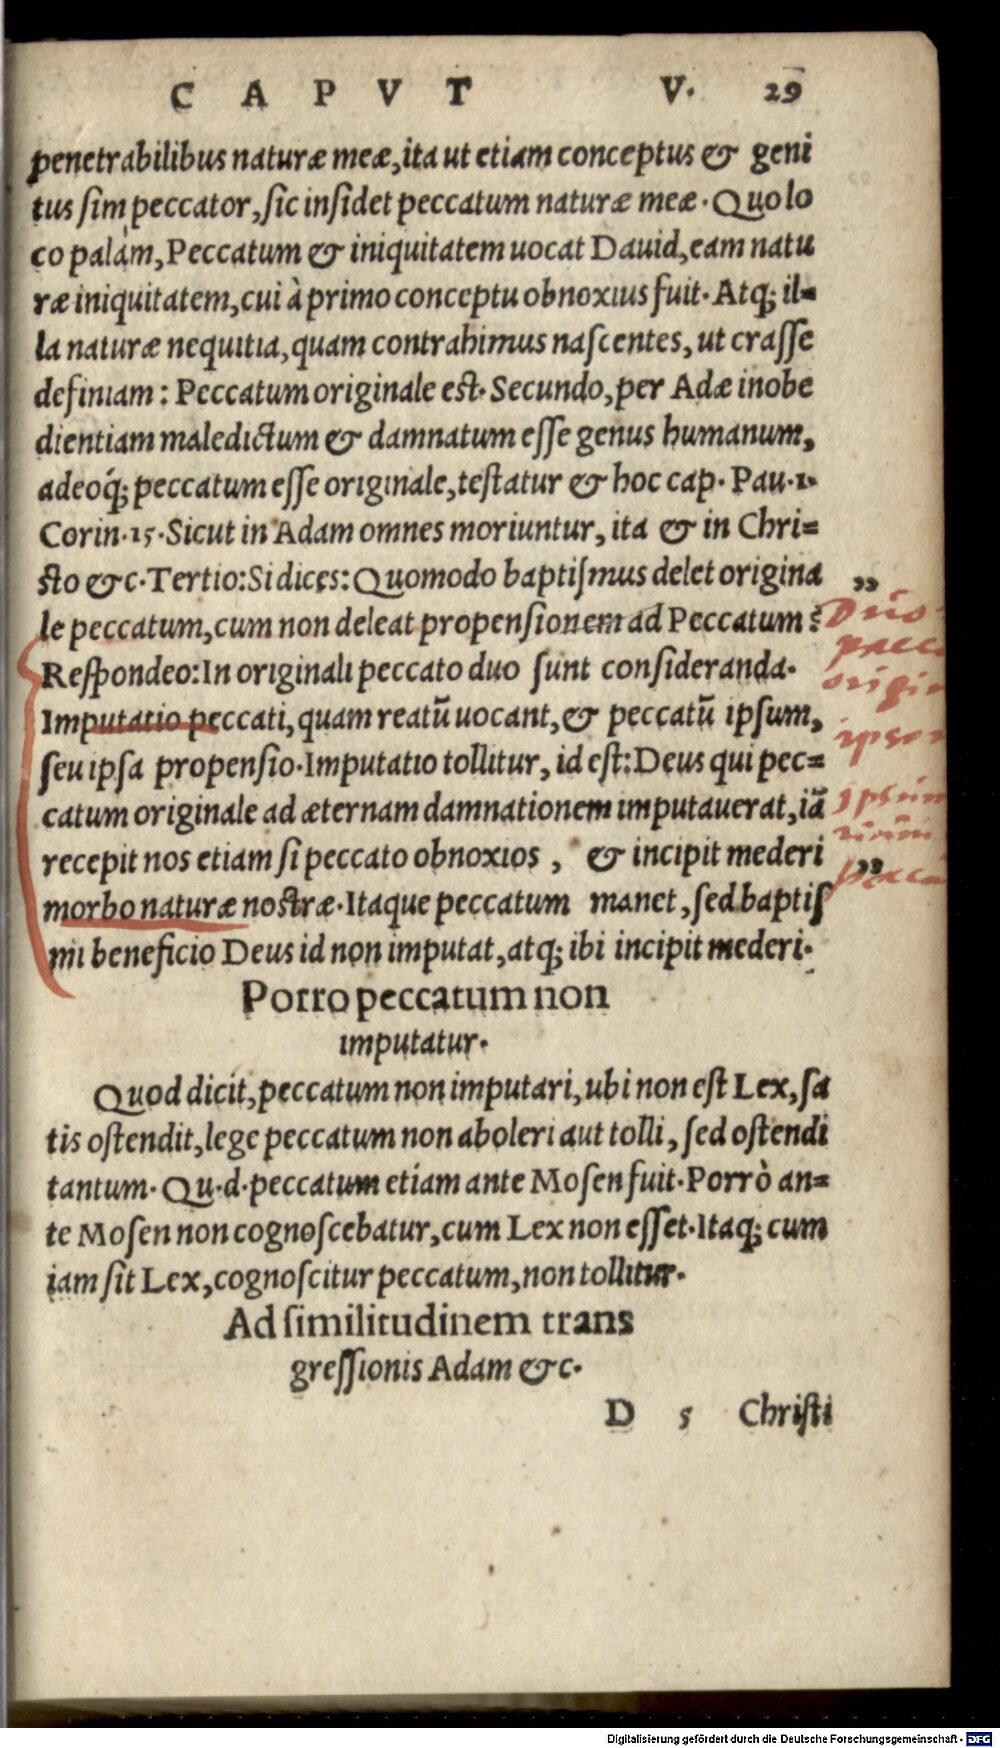 CAPVT V. 29
penetrabilibus naturæ meæ, ita ut etiam conceptus & geni
tus sim peccator, sic insidet peccatum naturæ meæ. Quo lo
co palàm, Peccatum & iniquitatem uocat Dauid, eam natu
ræ iniquitatem, cui à primo conceptu obnoxius fuit. Atq; il=
la naturæ nequitia, quam contrahimus nascentes, ut crasse
definiam: Peccatum originale est. Secundo, per Adæ inobe
dientiam maledictum & damnatum esse genus humanum,
adeoq́; peccatum esse originale, testatur & hoc cap. Pau. 1.
Corin. 15. Sicut in Adam omnes moriuntur, ita & in Chri=
sto &c. Tertio: Si dices: Quomodo baptismus delet origina ”
le peccatum, cum non deleat propensionem ad Peccatum?
Respondeo: In originali peccato duo sunt consideranda.
Imputatio peccati, quam reatū uocant, & peccatū ipsum,
seu ipsa propensio. Imputatio tollitur, id est: Deus qui pec=
catum originale ad æternam damnationem imputauerat, iā
recepit nos etiam si peccato obnoxios, & incipit mederi ”
morbo naturæ nostræ. Itaque peccatum manet, sed baptis
mi beneficio Deus id non imputat, atq; ibi incipit mederi.
Porro peccatum non
imputatur.
Quod dicit, peccatum non imputari, ubi non est Lex, sa
tis ostendit, lege peccatum non aboleri aut tolli, sed ostendi
tantum. Qu. d. peccatum etiam ante Mosen fuit. Porrò an=
te Mosen non cognoscebatur, cum Lex non esset. Itaq; cum
iam sit Lex, cognoscitur peccatum, non tollitur.
Ad similitudinem trans
gressionis Adam &c.
D 5 Christi
Duo
Digitalisierung gefördert durch die Deutsche Forschungsgemeinschaft - DFG